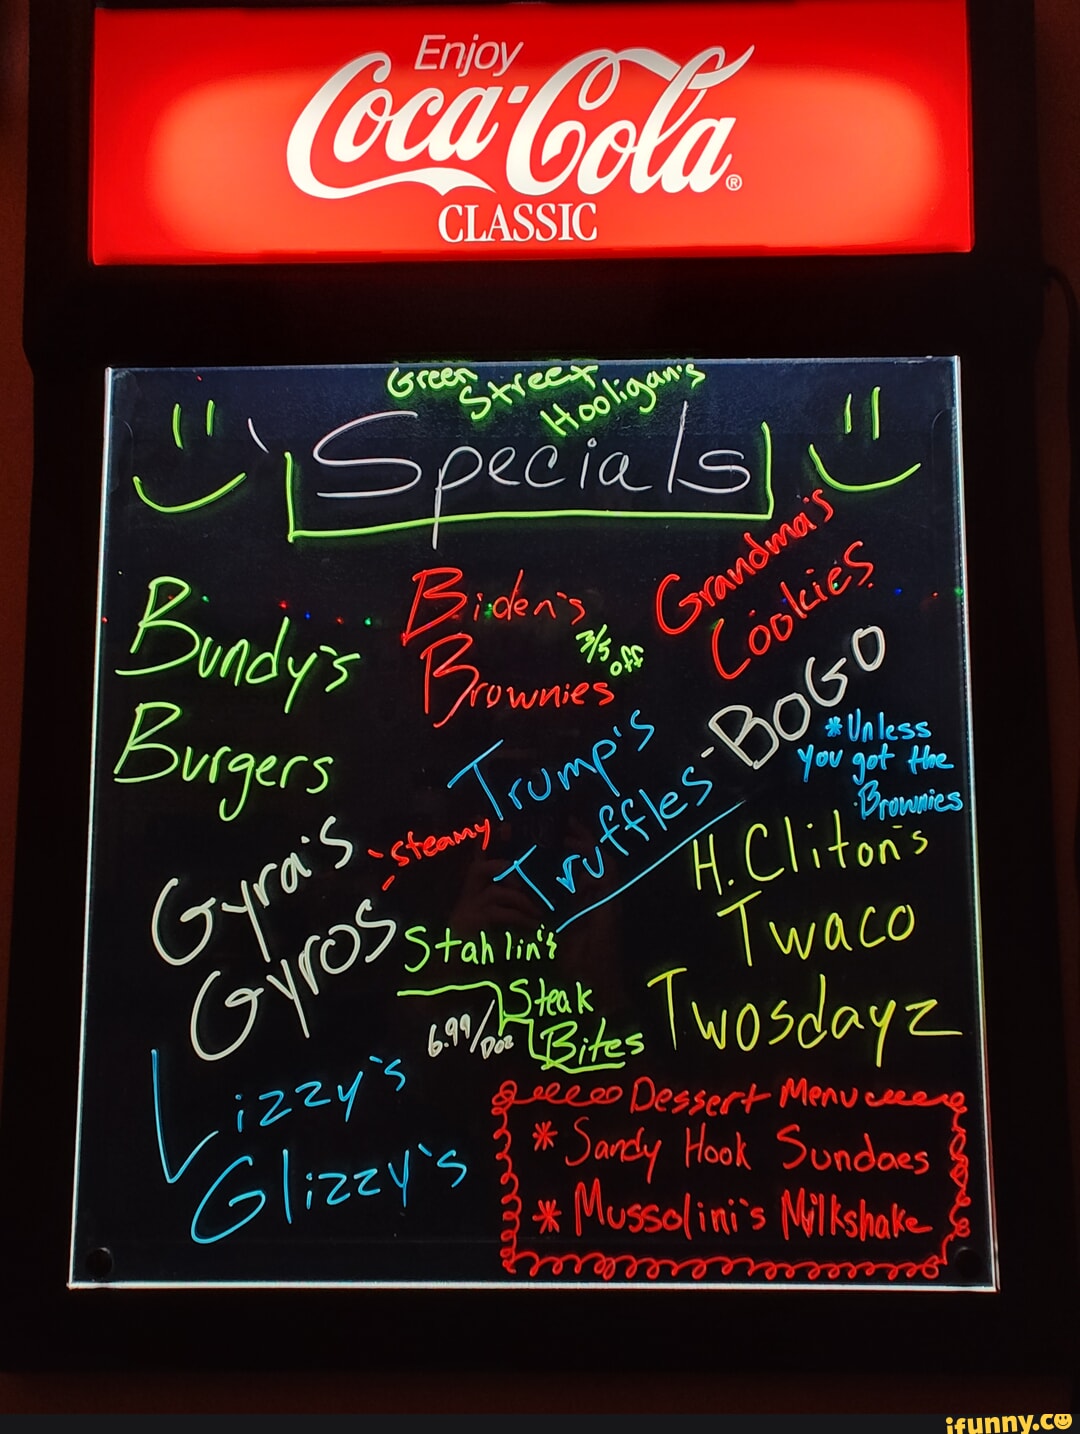 Enjoy
Coca-Cola®
CLASSIC
Green
Street
Hooligan's
Specials
Bundy's
Burgers
Biden's
Brownies
3/5 off
Grandma's
Cookies
Trump's
Truffles - BOGO
*Unless
you got the
Brownies
Gyra's
steamy
Gyros
H. Cliton's
Twaco
Twosdayz
Stahlin's
Steak
Bites
6.99/Doz
Lizzy's
Glizzy's
Dessert Menu
* Sandy Hook Sundaes
* Mussolini's Milkshake
ifunny.co